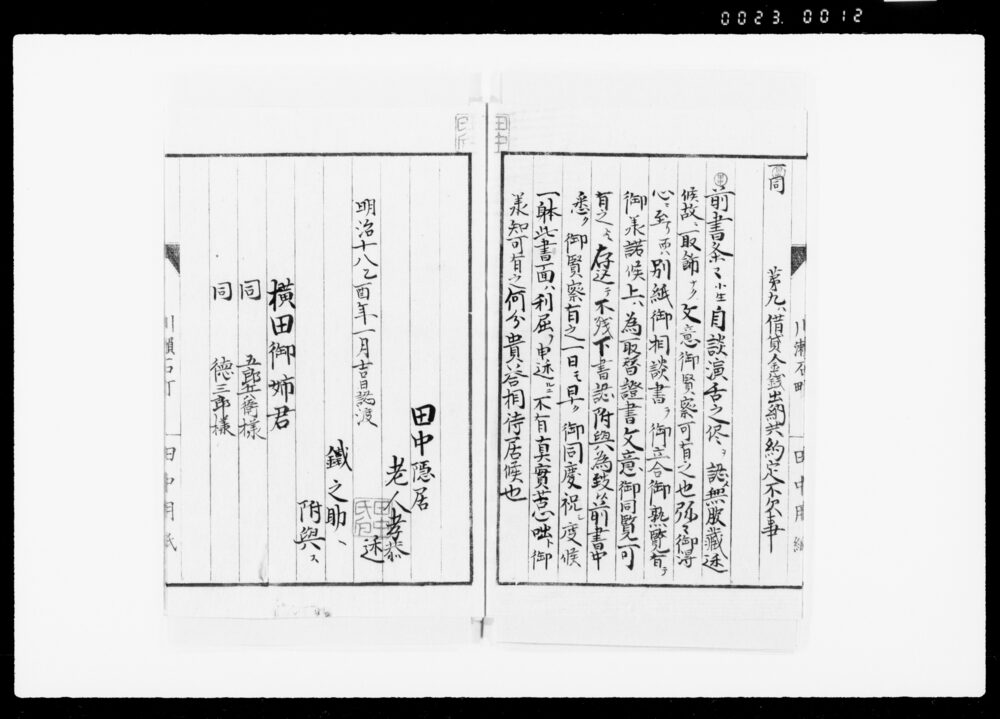 0023. 0012
一同
第九ハ借貸金錢出納共約定不欠事
前書条々小生自談演舌之侭ヲ認無腹藏述
候故取飾ナク文意御賢察可有之也弥々御得
心ニ至ラハ別紙御相談書ヲ御立合御熟覽有テ
御羕諾候上ハ為取替證書文意御同覽可
有之ト存込テ不残下書認附與為致候前書中
悉ク御賢察有之一日モ早ク御同慶祝シ度候
一躰此書面ハ利屈ヲ申述ルニ不有真實苦心咄ト御
羕知可有之何分貴答相待居候也
田中用紙
明治十八乙酉年一月吉日認渡
田中隠居
老人孝恭
述
鐵之助ヘ
附與ス
橫田御姉君
同 五郎兵衞様
同 德三郎様
田中用紙